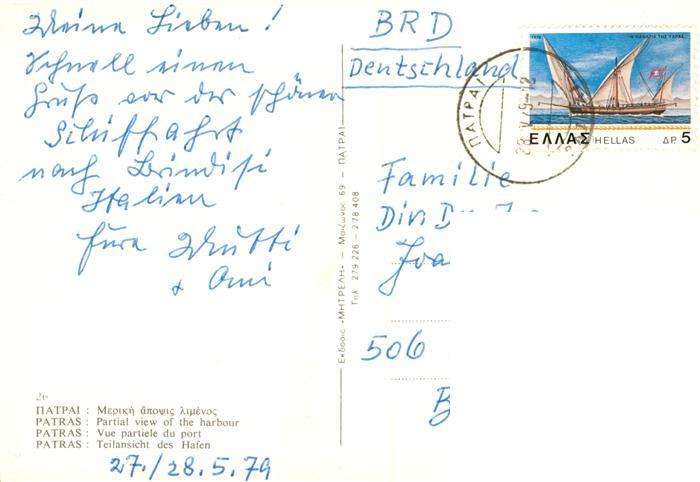 Meine Lieben!
Schnell einen
Gruß vor der schönen
Schiffahrt
nach Brindisi
Italien
Eure Mutti
+ Omi
26
ΠΑΤΡΑΙ : Μερική ἄποψις λιμένος
PATRAS : Partial view of the harbour
PATRAS : Vue partiele du port
PATRAS : Teilansicht des Hafen
27./28.5.79
Εκδοσις «ΜΗΤΡΕΛΗ» — Μαιζώνος 69 — ΠΑΤΡΑΙ
Τηλ. 279 226 — 278 408
BRD
Deutschland
ΠΑΤΡΑΙ
ΕΛΛΑΣ HELLAS ΔΡ 5
Familie
506